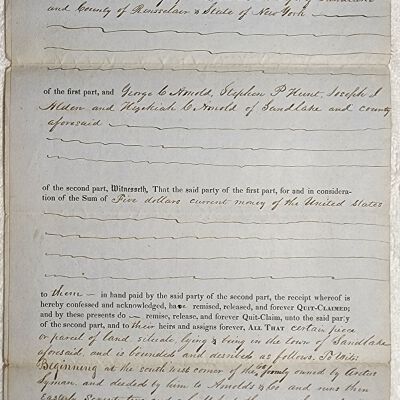 and County of Rensselaer & State of New York
of the first part, and George C Arnold, Stephen P Hunt, Joseph I
Alden and Hezekiah C Arnold of Sandlake and county
aforesaid
of the second part, Witnesseth, That the said party of the first part, for and in considera-
tion of the Sum of Five dollars current money of the United States
to them in hand paid by the said party of the second part, the receipt whereof is
hereby confessed and acknowledged, have remised, released, and forever QUIT-CLAIMED;
and by these presents do remise, release, and forever Quit-Claim, unto the said party
of the second part, and to their heirs and assigns forever, ALL THAT certain piece
or parcel of land situate, lying & being in the town of Sandlake
aforesaid, and is bounded and described as follows. To Wit:
Beginning at the south west corner of the formly owned by
Lyman, and deeded by him to Arnolds & Co and runs then